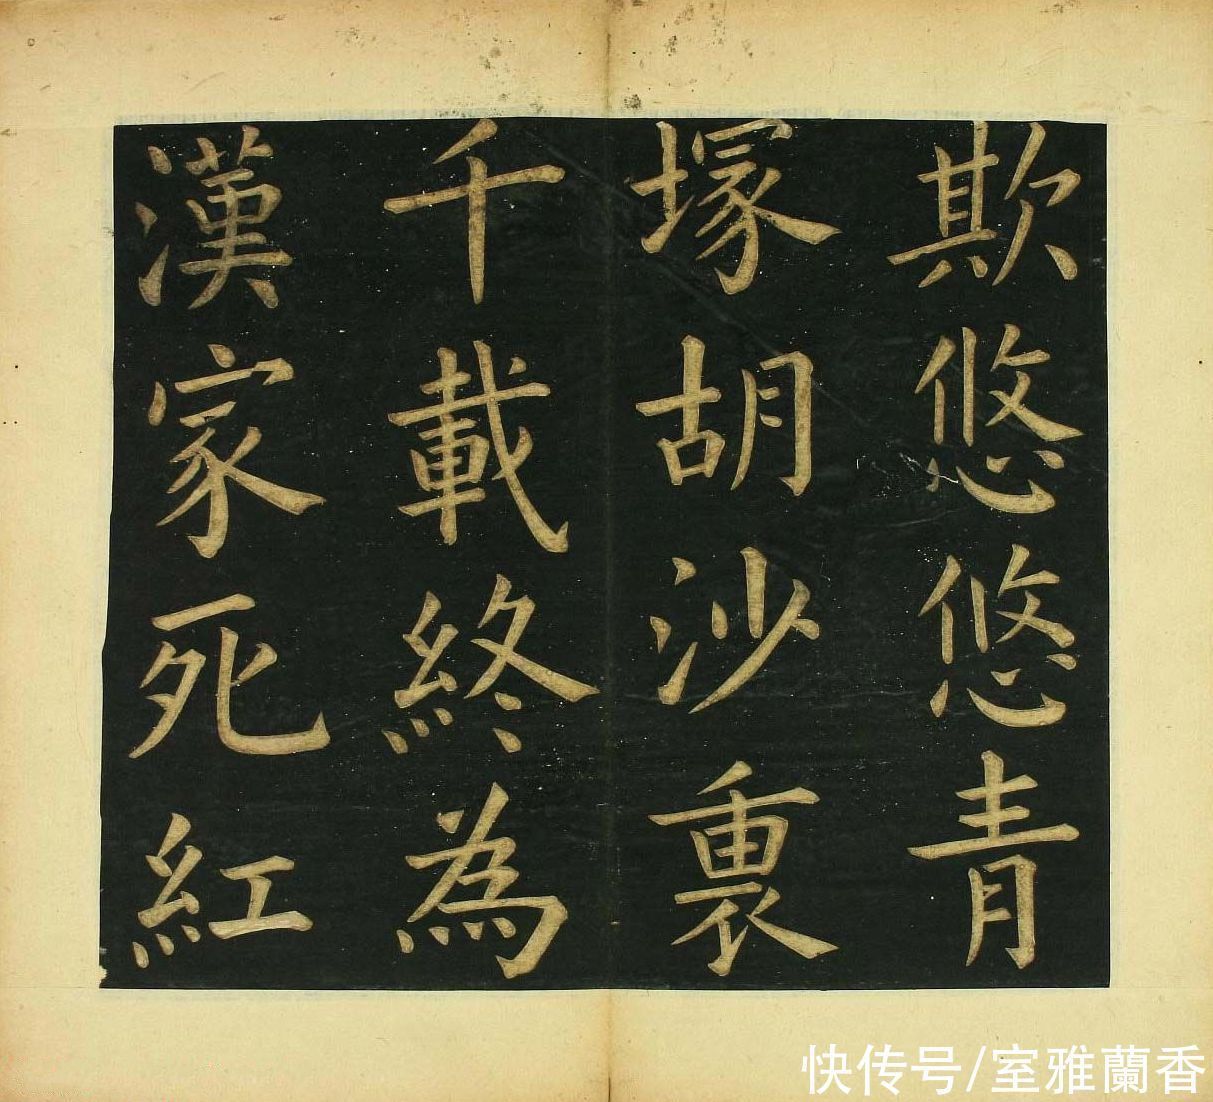 欺悠悠青
塚胡沙裏
千載終為
漢家死紅
快传号/室雅蘭香